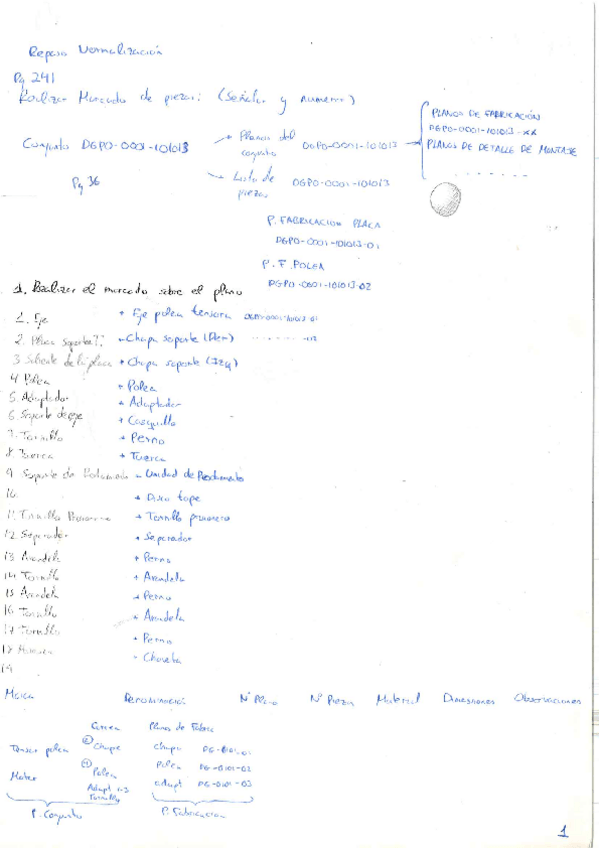 Repaso Normalización
Pg 241
Realizar Marcado de piezas: (Señalar y numerar)
Conjunto DGPO-0001-101013
Planos del conjunto DGPO-0001-101013
PLANOS DE FABRICACIÓN
DGPO-0001-101013-XX
PLANOS DE DETALLE DE MONTAJE
Pg 36
Lista de piezas DGPO-0001-101013
P. FABRICACION PLACA
DGPO-0001-101013-01
P. F. POLEA
DGPO-0001-101013-02
1. Realizar el marcado sobre el plano
1. Eje + Eje polea tensora
2. Placa soporte + Chapa soporte (Der)
3 Saliente de la placa + Chapa soporte (Izq)
4 Polea + Polea
5. Adaptador + Adaptador
6 Soporte de eje + Casquillo
7. Tornillo + Perno
8 Tuerca + Tuerca
9 Soporte de Rodamiento - Unidad de Rodamiento
10 + Disco tope
11. Tornillo Prisionero + Tornillo prisionero
12 Separador + Separador
13 Arandela + Perno
14 Tornillo + Arandela
15 Arandela + Perno
16 Tornillo + Arandela
17 Tornillo + Perno
18 - Chaveta
19
Marca Denominación Nº Plano Nº Piezas Material Dimensiones Observaciones
Correa Planos de Fabrica
Tensor polea Chapa chapa DG-0101-01
Motor Polea Polea DG-0101-02
Adapt Adapt DG-0101-03
Tornillo
P. Conjunto P. Fabricacion
1